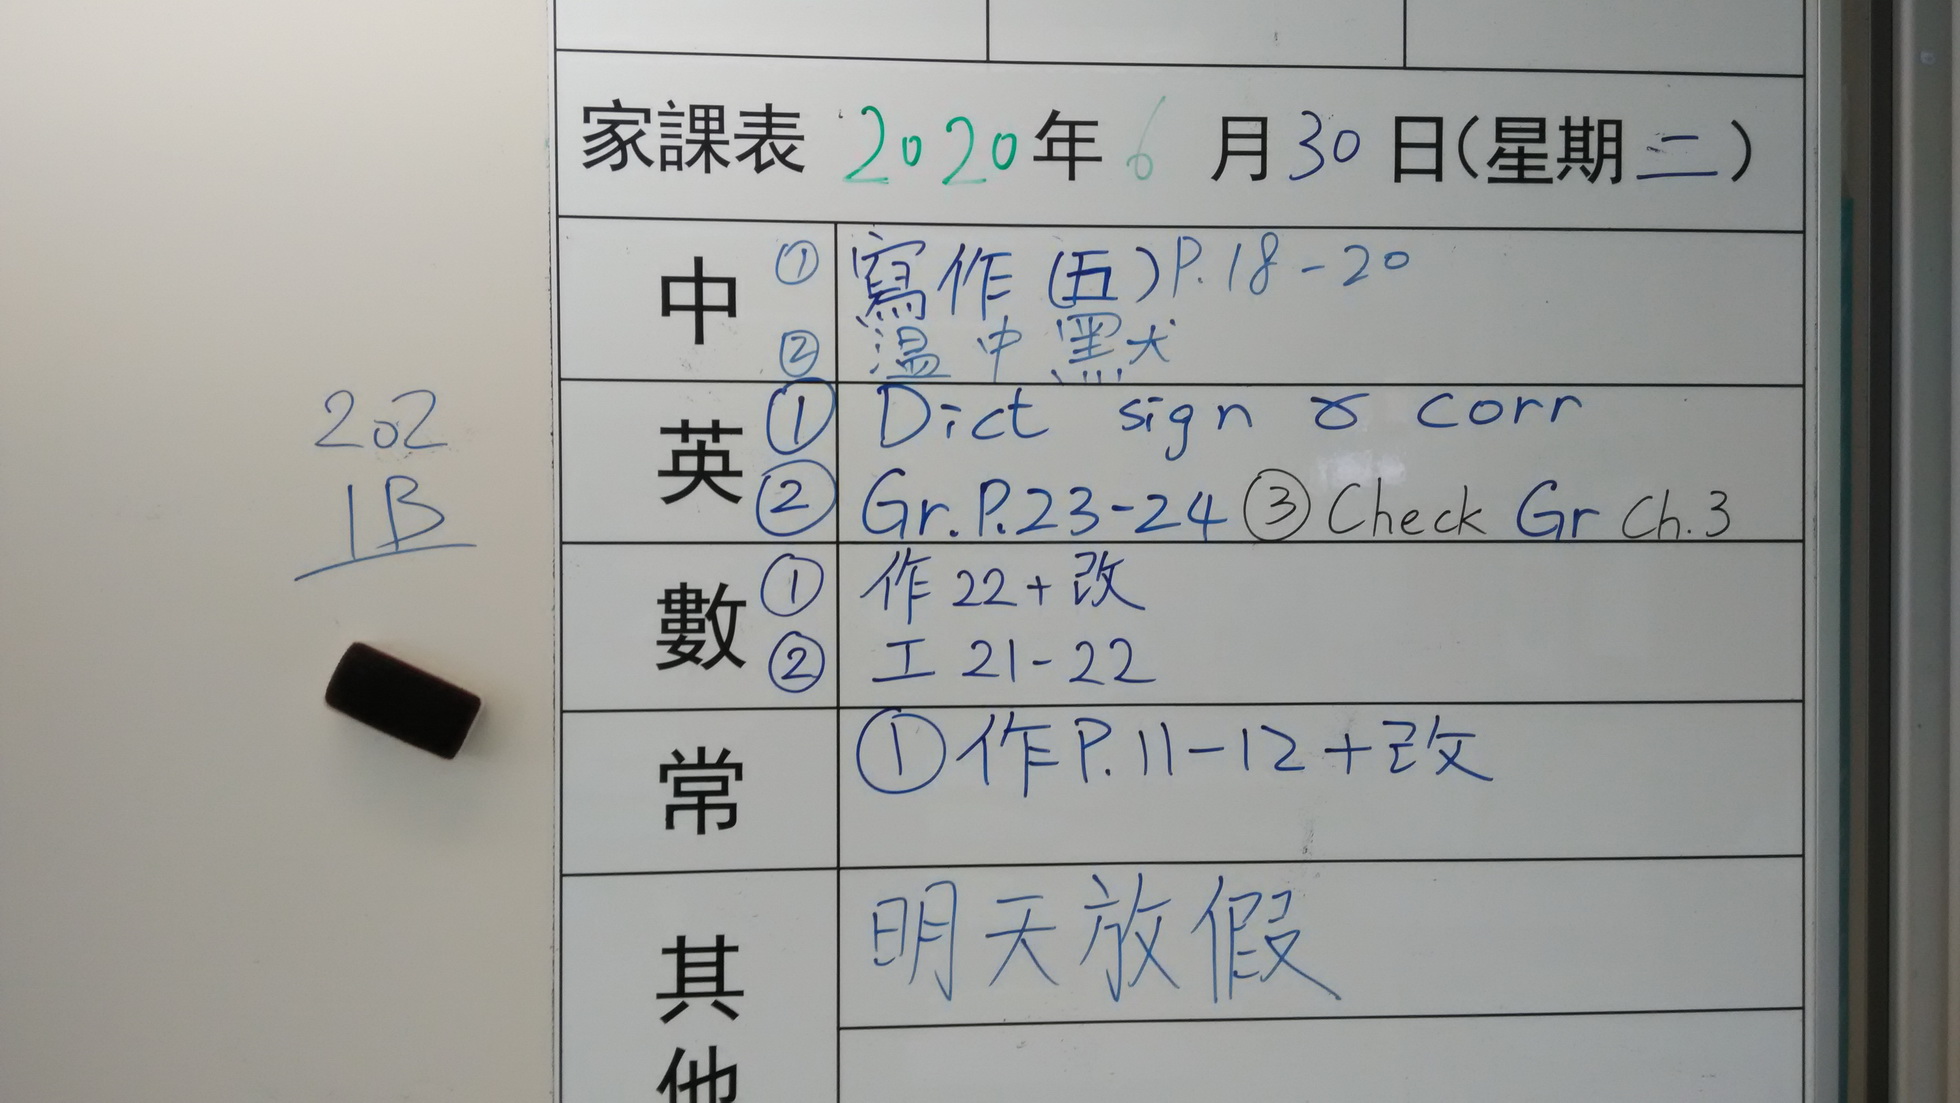 家課表 2020年6月30日(星期二)
中 ① 寫作(五)P.18-20
② 溫中黑犬
英 ① Dict sign & corr
② Gr.P.23-24 ③ Check Gr Ch.3
數 ① 作22+改
② 工21-22
常 ①作P.11-12+改
其他 明天放假
202
1B